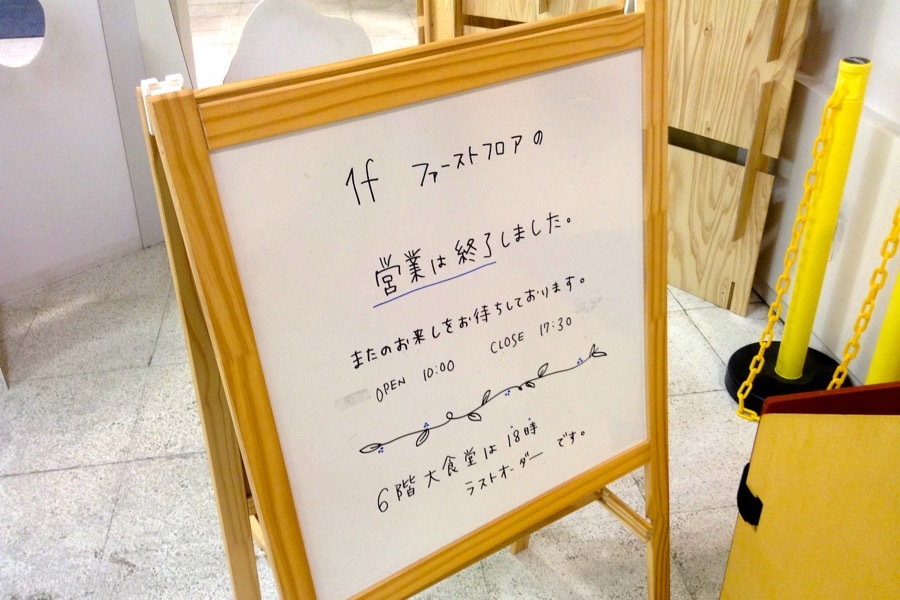 1f ファーストフロアの
営業は終了しました。
またのお来しをお待ちしております。
OPEN 10:00 CLOSE 17:30
6階大食堂は18時
ラストオーダーです。